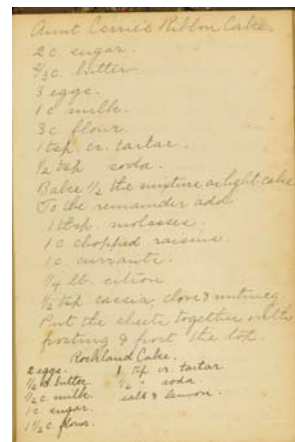 Aunt Carrie's Ribbon Cake
2 c. sugar.
2/3 c. butter
3 eggs.
1 c milk.
3 c. flour.
1 tsp cr. tartar
1/2 tsp soda.
Bake 1/2 the mixture as light cake
To the remainder add
1 tbsp molasses.
1 c chopped raisins.
1 c. currants.
1/4 lb. citron
1/2 tsp cassia, clove & nutmeg.
Put the sheets together with
frosting & frost the top.
Rockland Cake.
2 eggs. 1 tsp cr. tartar
butter 1/2 " soda.
1/2 c. milk salt & lemon.
1 c. sugar.
1 1/2 c. flour.